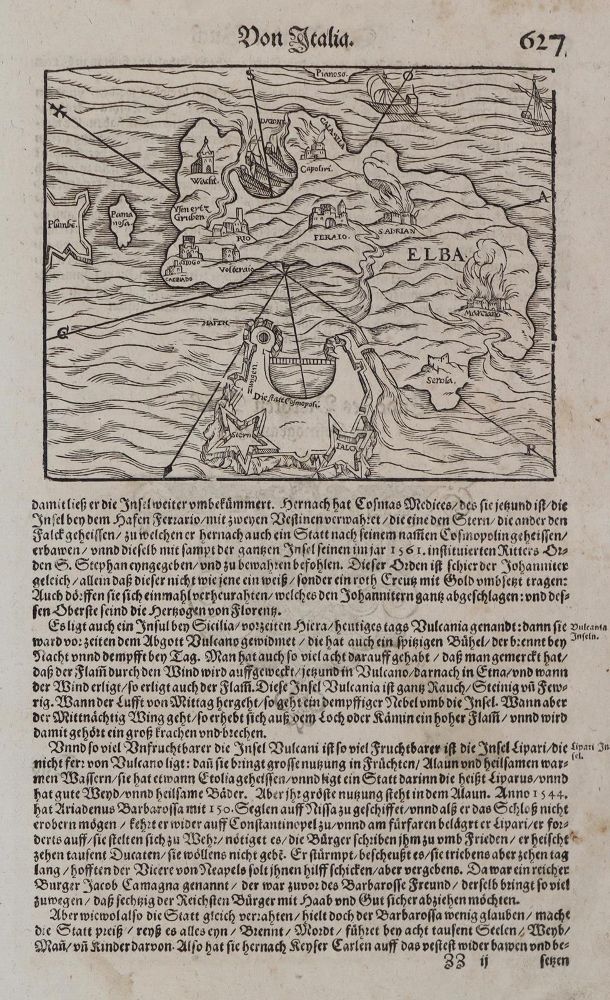 Von Italia.
627
S
Pianoso.
LVCONE
CALAMITA
O
Wacht.
Capoliri.
A
Plumbē.
Pamanosa.
Ysen ertz
Gruben
RIO
FERAIO.
S. ADRIAN
ELBA
Volteraio
Marciano
G
HAFEN
Serola.
Die statt Cosmopoli.
Stern
FALCK
R
damit ließ er die Insel weiter vmbekümmert. Hernach hat Cosmas Medices/ des sie jetzund ist/ die
Insel bey dem Hafen Ferrario/ mit zweyen Vestinen verwahret/ die eine den Stern/ die ander den
Falck geheissen/ zu welchen er hernach auch ein Statt nach seinem nam̃en Cosmopolin geheissen/
erbawen/ vnnd dieselb mit sampt der gantzen Insel seinen im jar 1561. instituierten Ritters Or-
den S. Stephan eyngegeben/ vnd zu bewahren befohlen. Dieser Orden ist schier der Johanniter
gleich/ allein daß dieser nicht wie jene ein weiß/ sonder ein roth Creutz mit Gold vmbsetzt tragen:
Auch dörffen sie sich einmahl verheurahten/ welches den Johannitern gantz abgeschlagen: vnd des-
sen Oberste seind die Hertzogen von Florentz.
Es ligt auch ein Insul bey Sicilia/ vorzeiten Hiera/ heutiges tags Vulcania genandt: dann sie
Vulcania
Inseln.
ward vorzeiten dem Abgott Vulcano gewidmet/ die hat auch ein spitzigen Bühel/ der brennt bey
Nacht vnnd dempfft bey Tag. Man hat auch so viel acht darauff gehabt/ daß man gemerckt hat/
daß der Flam̃ durch den Wind wird auffgeweckt/ jetzund in Vulcano/ darnach in Etna/ vnd wann
der Wind erligt/ so erligt auch der Flam̃. Diese Insel Vulcania ist gantz Rauch/ Steinig vñ Few-
rig. Wann der Lufft von Mittag hergeht/ so geht ein dempffiger Nebel vmb die Insel. Wann aber
der Mittnächtig Wing geht/ so erhebt sich auß dem Loch oder Kämin ein hoher Flam̃/ vnnd wird
damit gehört ein groß krachen vnd brechen.
Vnnd so viel Vnfruchtbarer die Insel Vulcani ist so viel Fruchtbarer ist die Insel Lipari/ die
Lipari In
sel.
nicht fer: von Vulcano ligt: dañ sie bringt grosse nutzung in Früchten/ Alaun vnd heilsamen war-
men Wassern/ sie hat etwann Etolia geheissen/ vnnd ligt ein Statt darinn die heißt Liparus/ vnnd
hat gute Weyd/ vnnd heilsame Bäder. Aber jhr gröste nutzung steht in dem Alaun. Anno 1544.
hat Ariadenus Barbarossa mit 150. Seglen auff Nissa zu geschiffet/ vnnd alß er das Schloß nicht
erobern mögen/ kehrt er wider auff Constantinopel zu/ vnnd am fürfaren belägrt er Lipari/ er for-
derts auff/ sie stelten sich zu Wehr/ nötiget es/ die Bürger schriben jhm zu vmb Frieden/ er heischt
zehen tausent Ducaten/ sie wöllens nicht gebē. Er stürmpt/ bescheußt es/ sie triebens aber zehen tag
lang/ hofften der Vicere von Neapels solt jhnen hilff schicken/ aber vergebens. Da war ein reicher
Burger Jacob Camagna genannt/ der war zuvor des Barbarosse Freund/ derselb bringt so viel
zuwegen/ daß sechtzig der Reichsten Bürger mit Haab vnd Gut sicher abziehen möchten.
Aber wiewol also die Statt gleich verrahten/ hielt doch der Barbarossa wenig glauben/ mache
die Statt preiß/ reyß es alles eyn/ Brennt/ Mordt/ führet bey acht tausent Seelen/ Weyb/
Mañ/ vñ Kinder darvon. Also hat sie hernach Keyser Carlen auff das vestest wider bawen vnd be-
ZZ ij
setzen